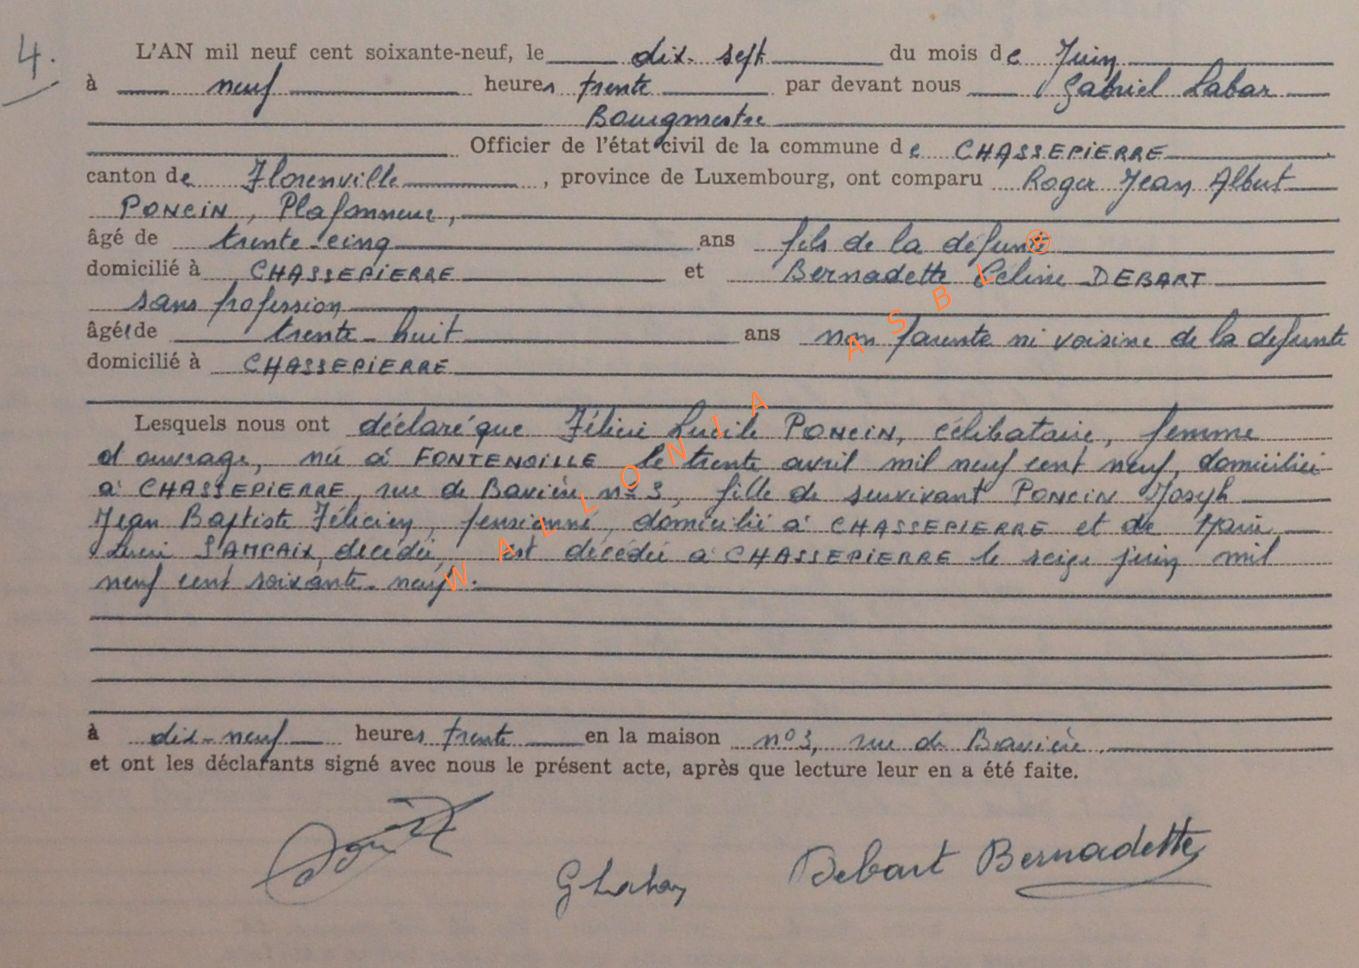 4.
L'AN mil neuf cent soixante-neuf, le dix-sept du mois de Juin
à neuf heures trente par devant nous Gabriel Labar
Bourgmestre
Officier de l'état civil de la commune de CHASSEPIERRE
canton de Florenville, province de Luxembourg, ont comparu Roger Jean Albert
PONCIN, Plafonneur,
âgé de trente-cinq ans fils de la défunte
domicilié à CHASSEPIERRE et Bernadette Céline DEBART
sans profession
âgée de trente-huit ans non parente ni voisine de la défunte
domicilié à CHASSEPIERRE
Lesquels nous ont déclaré que Félicie Lucile PONCIN, célibataire, femme
d'ouvrage, née à FONTENOILLE le trente avril mil neuf cent neuf, domiciliée
à CHASSEPIERRE, rue de Bavière n° 3, fille de survivant PONCIN Joseph
Jean Baptiste Félicien, pensionné, domicilié à CHASSEPIERRE et de Marie
Lucie décédée est décédée à CHASSEPIERRE le seize juin mil
neuf cent soixante-neuf.
à dix-neuf heures trente en la maison n° 3, rue de Bavière
et ont les déclarants signé avec nous le présent acte, après que lecture leur en a été faite.
Debart Bernadette
WALLONIA ASBL